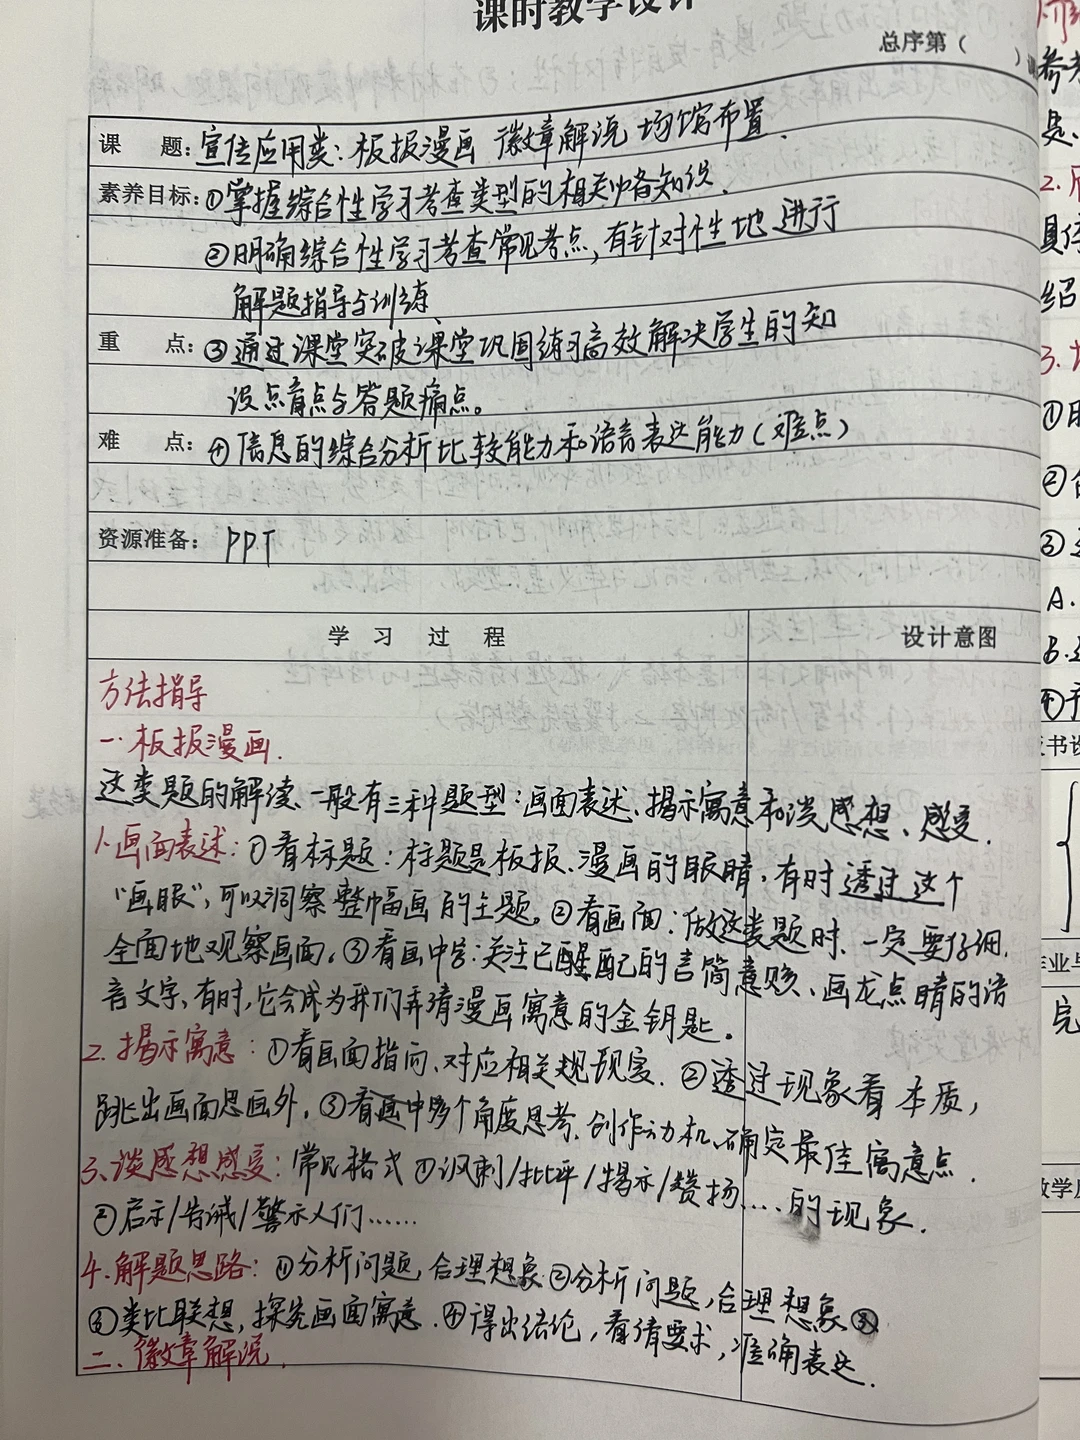 课时教学设计
总序第（ ）
课 题：宣传应用类：板报漫画 徽章解说 场馆布置.
素养目标：①掌握综合性学习考查类型的相关必备知识.
②明确综合性学习考查常见考点，有针对性地进行
解题指导与训练、
重 点：③通过课堂突破课堂巩固练习高效解决学生的知
识点盲点与答题痛点。
难 点：④信息的综合分析比较能力和语言表达能力（难点）
资源准备：PPT
学 习 过 程 设计意图
方法指导
一.板报漫画.
这类题的解读、一般有三种题型：画面表述、揭示寓意和谈感想、感受.
1.画面表述：①看标题：标题是板报、漫画的眼睛，有时透过这个
“画眼”，可以洞察整幅画的主题。②看画面：做这类题时、一定要仔细.
全面地观察画面。③看画中字：关注已醒配的言简意赅、画龙点睛的语
言文字，有时，它会成为我们弄清漫画寓意的金钥匙。
2.揭示寓意：①看画面指向、对应相关规现实. ②透过现象看本质，
跳出画面思画外。③看画中多个角度思考、创作动机、确定最佳寓意点.
3、谈感想感受：常见格式①讽刺/批评/揭示/赞扬……的现象.
②启示/告诫/警示人们……
4.解题思路：①分析问题，合理想象②分析问题，合理想象③
③类比联想，探究画面寓意.④得出结论，看清要求，准确表达.
二、徽章解说.
参考
是、
2.
具体
绍
3.
①
②
③
A.
B.
④
板书设
作业与
完
教学反